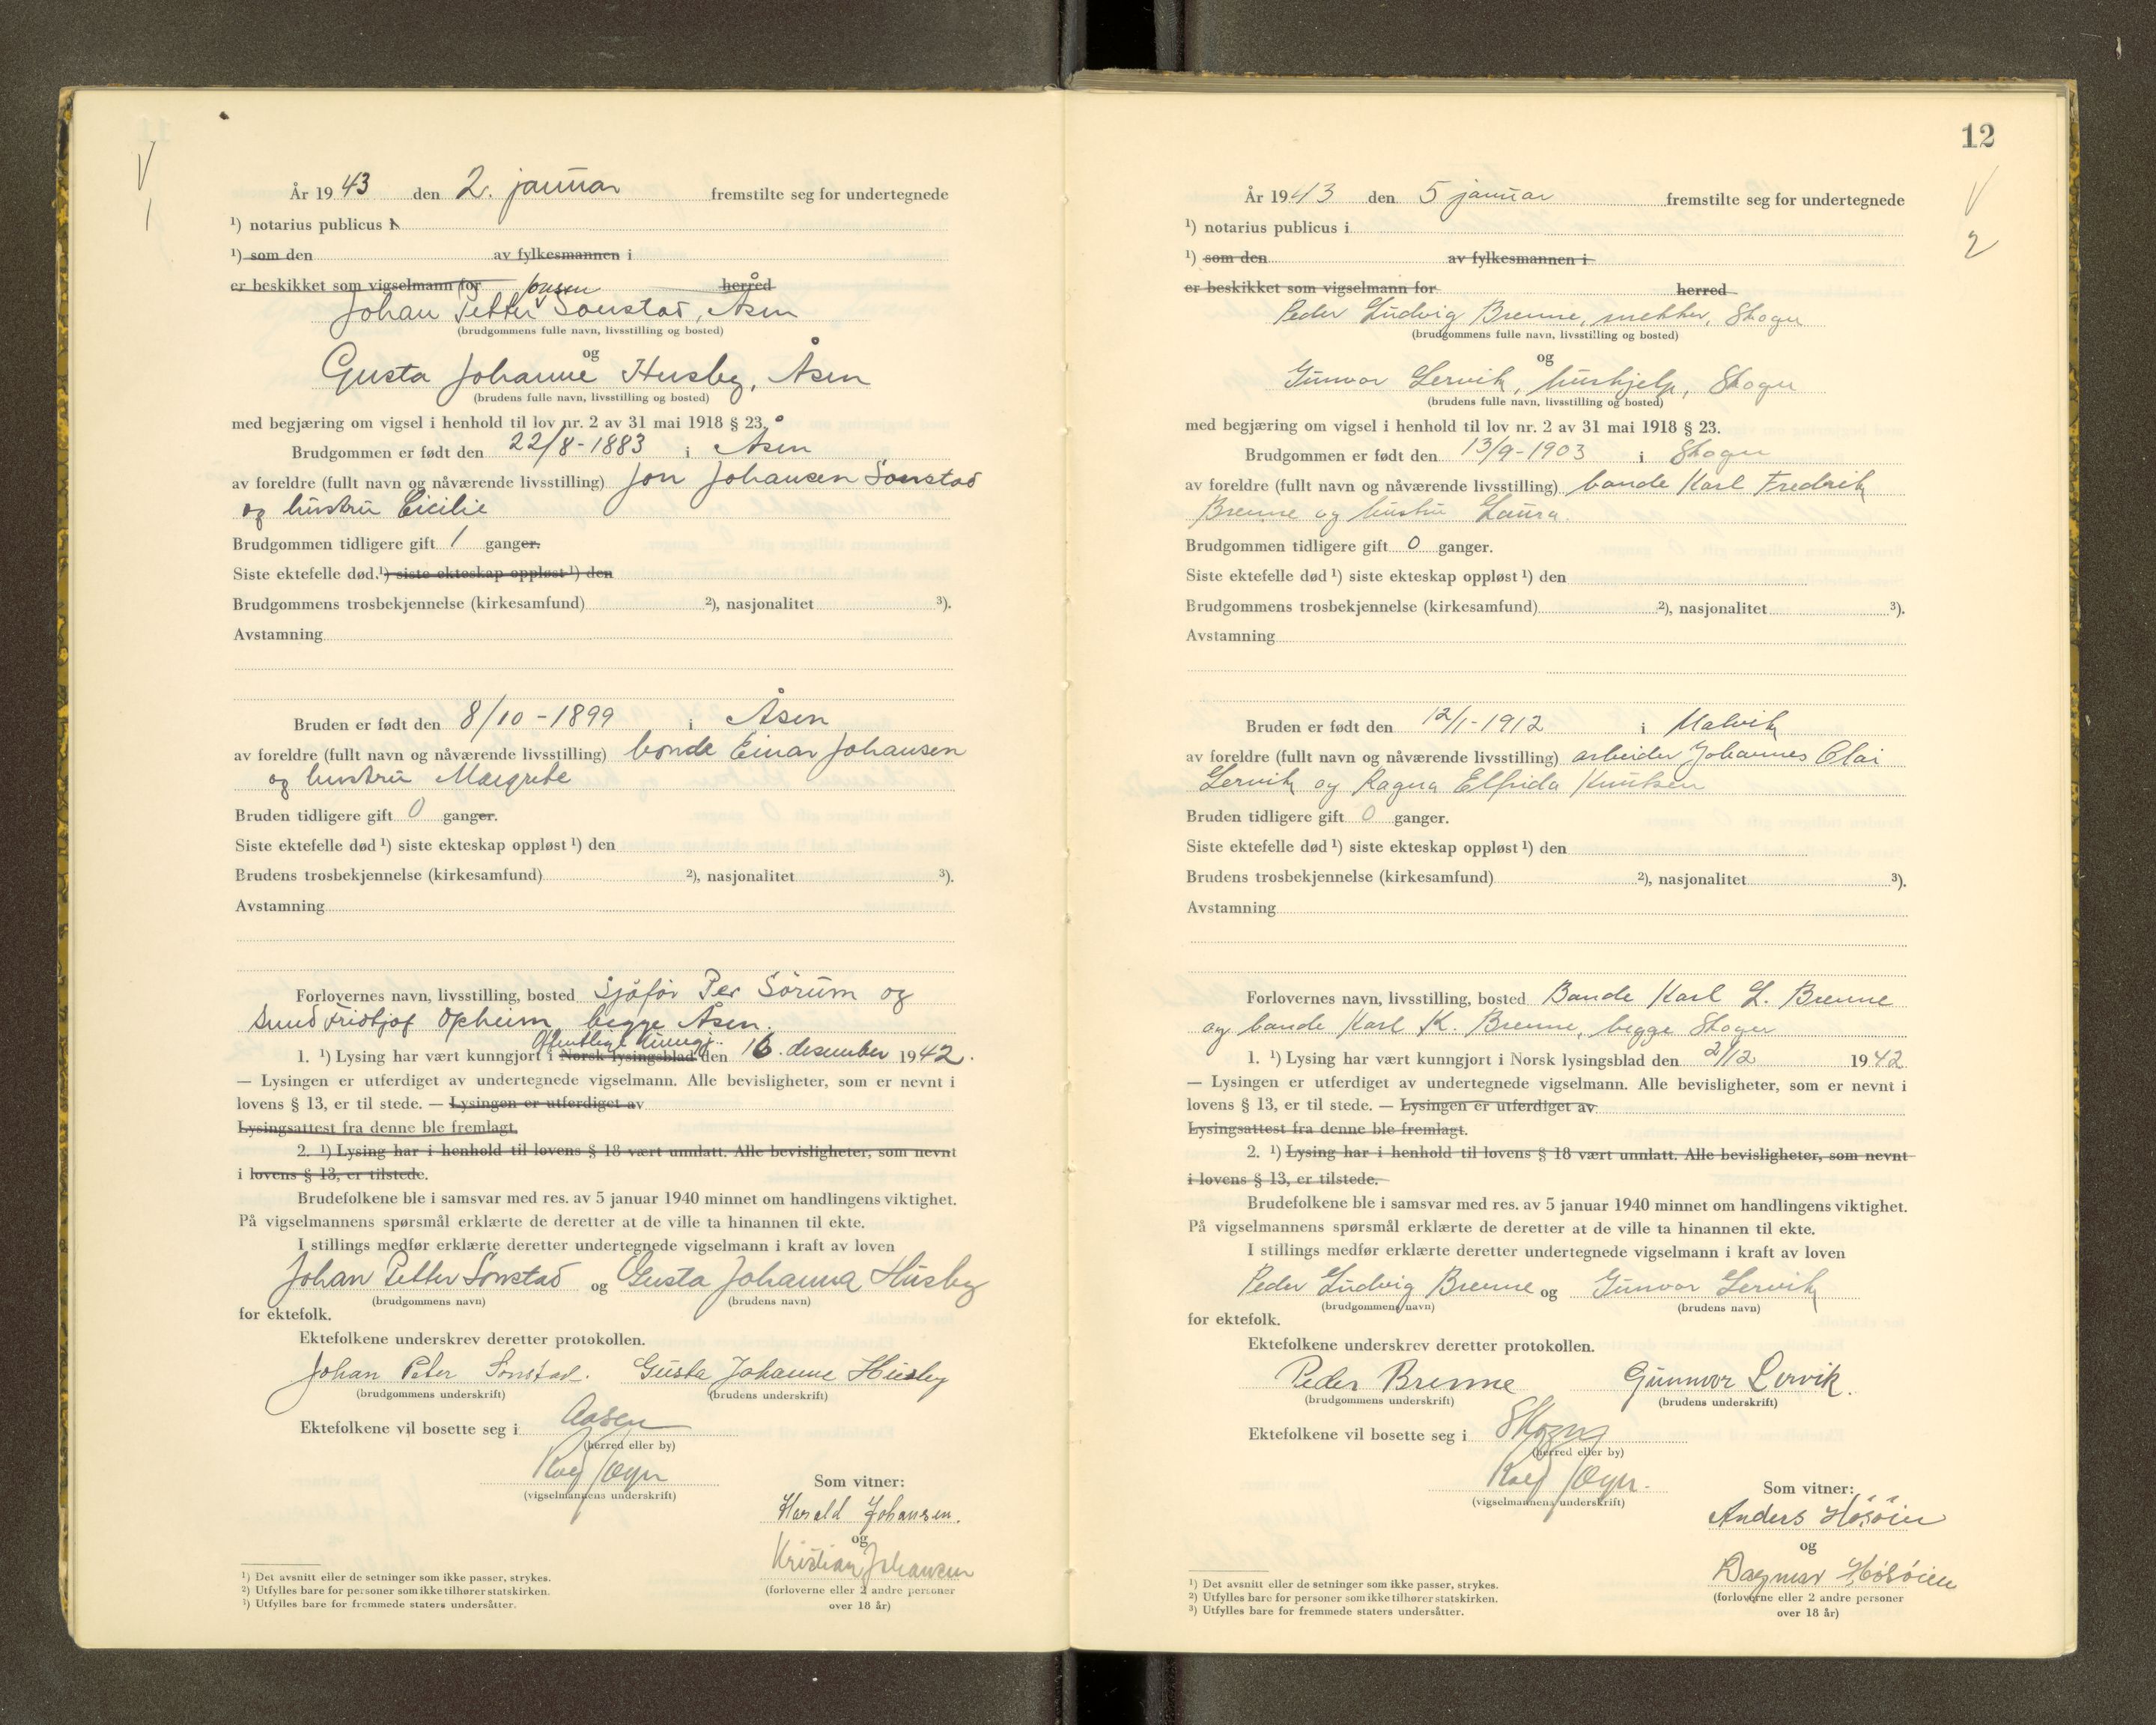 V
1
År 1943 den 2. januar fremstilte seg for undertegnede
¹) notarius publicus i
¹) som den av fylkesmannen i
er beskikket som vigselmann for herred
Jonsen
Johan Petter Sonstad, Åsen
(brudgommens fulle navn, livsstilling og bosted)
og
Gusta Johanne Husby, Åsen
(brudens fulle navn, livsstilling og bosted)
med begjæring om vigsel i henhold til lov nr. 2 av 31 mai 1918 § 23.
Brudgommen er født den 22/8-1883 i Åsen
av foreldre (fullt navn og nåværende livsstilling) Jon Johansen Sonstad
og hustru Cicilie
Brudgommen tidligere gift 1 ganger.
Siste ektefelle død.¹) siste ekteskap oppløst ¹) den
Brudgommens trosbekjennelse (kirkesamfund) ²), nasjonalitet ³).
Avstamning
Bruden er født den 8/10-1899 i Åsen
av foreldre (fullt navn og nåværende livsstilling) bonde Einar Johansen
og hustru Margrete
Bruden tidligere gift 0 ganger.
Siste ektefelle død ¹) siste ekteskap oppløst ¹) den
Brudens trosbekjennelse (kirkesamfund) ²), nasjonalitet ³).
Avstamning
Forlovernes navn, livsstilling, bosted Sjåfør Per Sørum og
Fridtjof Opheim, begge Åsen.
Offentlige kunngj.
1. ¹) Lysing har vært kunngjort i Norsk lysingsblad den 16. desember 1942.
— Lysingen er utferdiget av undertegnede vigselmann. Alle bevisligheter, som er nevnt i
lovens § 13, er til stede. — Lysingen er utferdiget av
Lysingsattest fra denne ble fremlagt.
2. ¹) Lysing har i henhold til lovens § 18 vært unnlatt. Alle bevisligheter, som nevnt
i lovens § 13, er tilstede.
Brudefolkene ble i samsvar med res. av 5 januar 1940 minnet om handlingens viktighet.
På vigselmannens spørsmål erklærte de deretter at de ville ta hinannen til ekte.
I stillings medfør erklærte deretter undertegnede vigselmann i kraft av loven
Johan Petter Sonstad og Gusta Johanna Husby
(brudgommens navn) (brudens navn)
for ektefolk.
Ektefolkene underskrev deretter protokollen.
Johan Peter Sonstad. Gusta Johanne Husby
(brudgommens underskrift) (brudens underskrift)
Ektefolkene vil bosette seg i Aasen
(herred eller by)
(vigselmannens underskrift)
Som vitner:
Harald Johansen.
og
Kristian Johansen
(forloverne eller 2 andre personer
over 18 år)
¹) Det avsnitt eller de setninger som ikke passer, strykes.
²) Utfylles bare for personer som ikke tilhører statskirken.
³) Utfylles bare for fremmede staters undersåtter.
12
V
2
År 1943 den 5 januar fremstilte seg for undertegnede
¹) notarius publicus i
¹) som den av fylkesmannen i
er beskikket som vigselmann for herred
Peder Ludvig Brenne, Skogn
(brudgommens fulle navn, livsstilling og bosted)
og
Gunvor Lervik, hushjelp, Skogn
(brudens fulle navn, livsstilling og bosted)
med begjæring om vigsel i henhold til lov nr. 2 av 31 mai 1918 § 23.
Brudgommen er født den 13/9-1903 i Skogn
av foreldre (fullt navn og nåværende livsstilling) bonde Karl Fredrik
Brenne og hustru Laura.
Brudgommen tidligere gift 0 ganger.
Siste ektefelle død ¹) siste ekteskap oppløst ¹) den
Brudgommens trosbekjennelse (kirkesamfund) ²), nasjonalitet ³).
Avstamning
Bruden er født den 12/1-1912 i Malvik
av foreldre (fullt navn og nåværende livsstilling) arbeider Johannes Olai
Lervik og Ragna Elfrida Knutsen
Bruden tidligere gift 0 ganger.
Siste ektefelle død ¹) siste ekteskap oppløst ¹) den
Brudens trosbekjennelse (kirkesamfund) ²), nasjonalitet ³).
Avstamning
Forlovernes navn, livsstilling, bosted Bonde Karl L. Brenne
og bonde Karl K. Brenne, begge Skogn
1. ¹) Lysing har vært kunngjort i Norsk lysingsblad den 2/12 1942
— Lysingen er utferdiget av undertegnede vigselmann. Alle bevisligheter, som er nevnt i
lovens § 13, er til stede. — Lysingen er utferdiget av
Lysingsattest fra denne ble fremlagt.
2. ¹) Lysing har i henhold til lovens § 18 vært unnlatt. Alle bevisligheter, som nevnt
i lovens § 13, er tilstede.
Brudefolkene ble i samsvar med res. av 5 januar 1940 minnet om handlingens viktighet.
På vigselmannens spørsmål erklærte de deretter at de ville ta hinannen til ekte.
I stillings medfør erklærte deretter undertegnede vigselmann i kraft av loven
Peder Ludvig Brenne og Gunvor Lervik
(brudgommens navn) (brudens navn)
for ektefolk.
Ektefolkene underskrev deretter protokollen.
Peder Brenne Gunnvor Lervik.
(brudgommens underskrift) (brudens underskrift)
Ektefolkene vil bosette seg i Skogn
(herred eller by)
(vigselmannens underskrift)
Som vitner:
Anders Høsøien
og
Dagmar Høsøien
(forloverne eller 2 andre personer
over 18 år)
¹) Det avsnitt eller de setninger som ikke passer, strykes.
²) Utfylles bare for personer som ikke tilhører statskirken.
³) Utfylles bare for fremmede staters undersåtter.